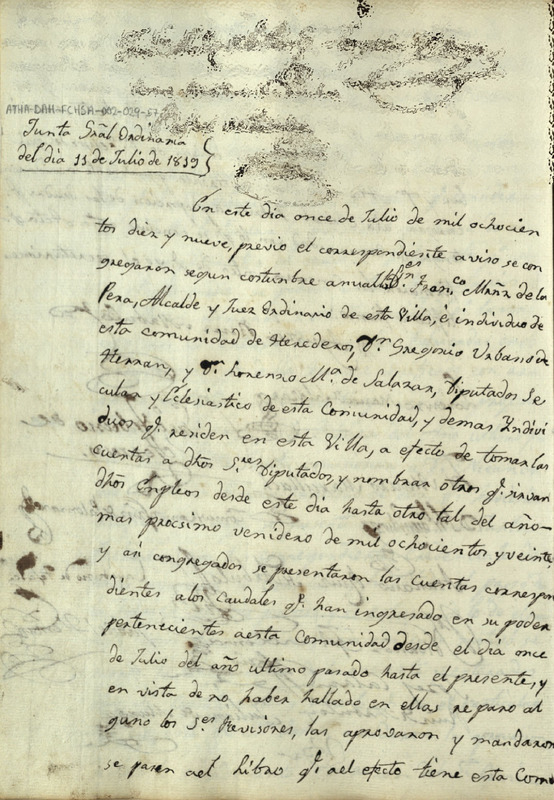 ATHA-DAH-FCHSH-002-029-57
Junta Gral Ordinaria
del dia 11 de Julio de 1819
En este dia once de Julio de mil ochocien
tos diez y nueve, previo el correspondiente aviso se con
gregaron segun costumbre anual los Sres Dn Franco Mrñz de la
Pera, Alcalde y Juez Ordinario de esta Villa, è individuo de
esta comunidad de Herederos, Dn Gregorio Urbano de
Herran, y Dn Lorenzo Ma. de Salazar, Diputados Se
cular y Eclesiastico de esta Comunidad, y demas Yndivi
duos q. residen en esta Villa, a efecto de tomar las
cuentas a dhos Sres Diputados, y nombrar otros q. sirvan
dhos Empleos desde este dia hasta otro tal del año
mas procsimo venidero de mil ochocientos y veinte,
y asi congregados se presentaron las cuentas correspon
dientes alos caudales q. han ingresado en su poder
pertenecientes aesta Comunidad desde el dia once
de Julio del año ultimo pasado hasta el presente, y
en vista de no haber hallado en ellas reparo al
guno los Sres Revisores, las aprovaron y mandaron
se pasen ael Libro q. ael efecto tiene esta Comu